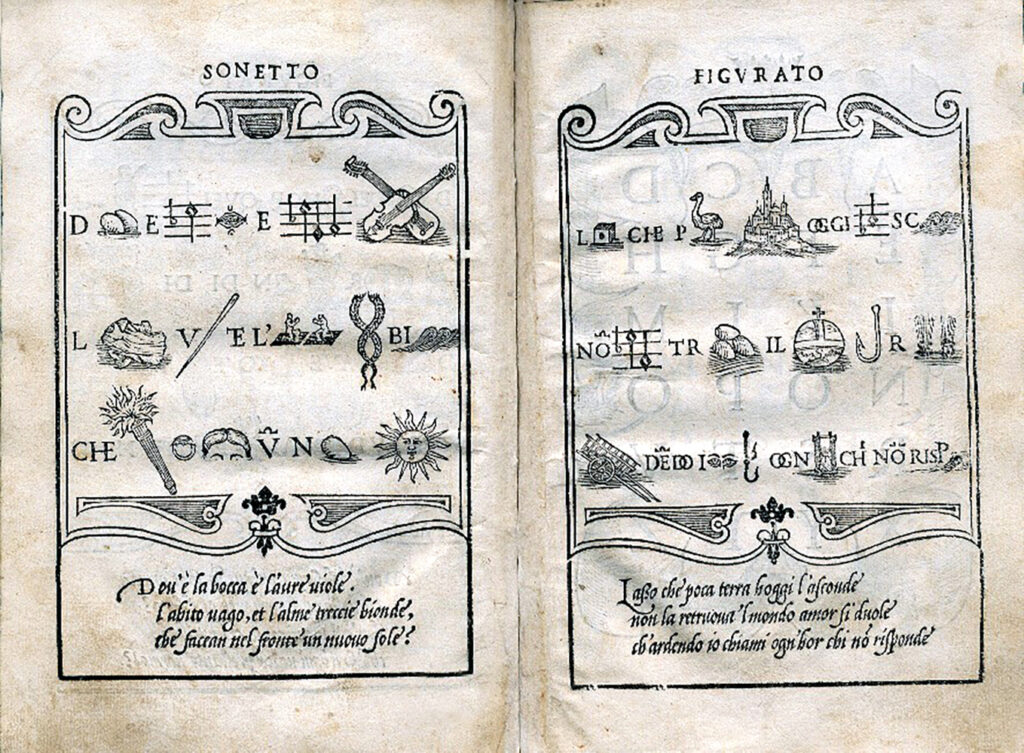 SONETTO
D E E
L V TE L' BI
CHE Ṽ N
Dou'è la bocca è l'aure uiole.
l'abito uago, et l'alme treccie bionde,
che faccan nel fronte un nuouo sole?
FIGVRATO
L CHE P OGGI SC
NÕ TR IL R
DẼDO I OGN CH NÕ RISP
Lasso che poca terra hoggi l'asconde
non la retruoua 'l mondo amor si duole
ch'ardendo io chiami ogn'hor chi nõ risponde